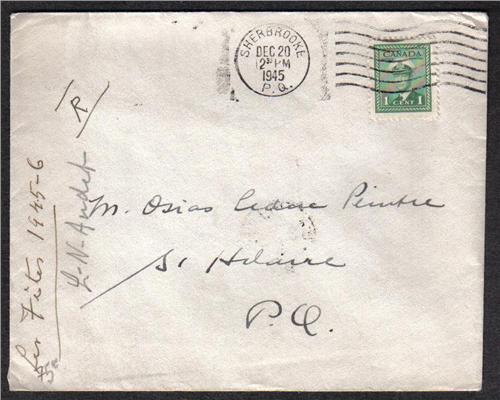 SHERBROOKE
DEC 20
12 PM
1945
P.Q.
CANADA
1 CENT 1
M. Osias Leduc Peintre
St Hilaire
P.Q.
Les Fêtes 1945-6
L-N. Audet
R